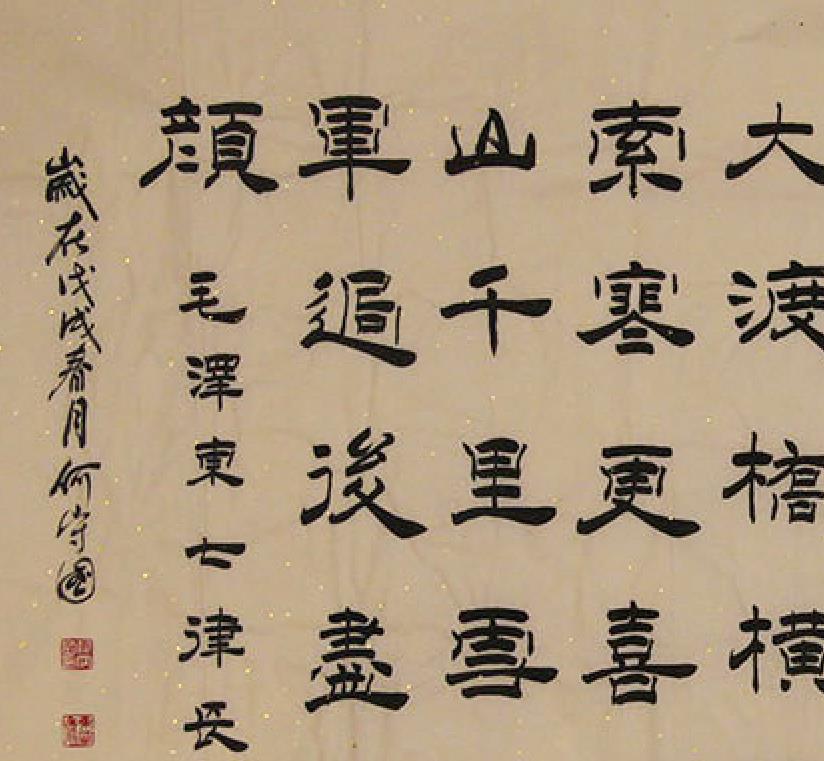 大渡橋橫
索寒更喜
山千里雪
軍過後盡
顏
毛澤東七律長
歲在戊戌春月何守國